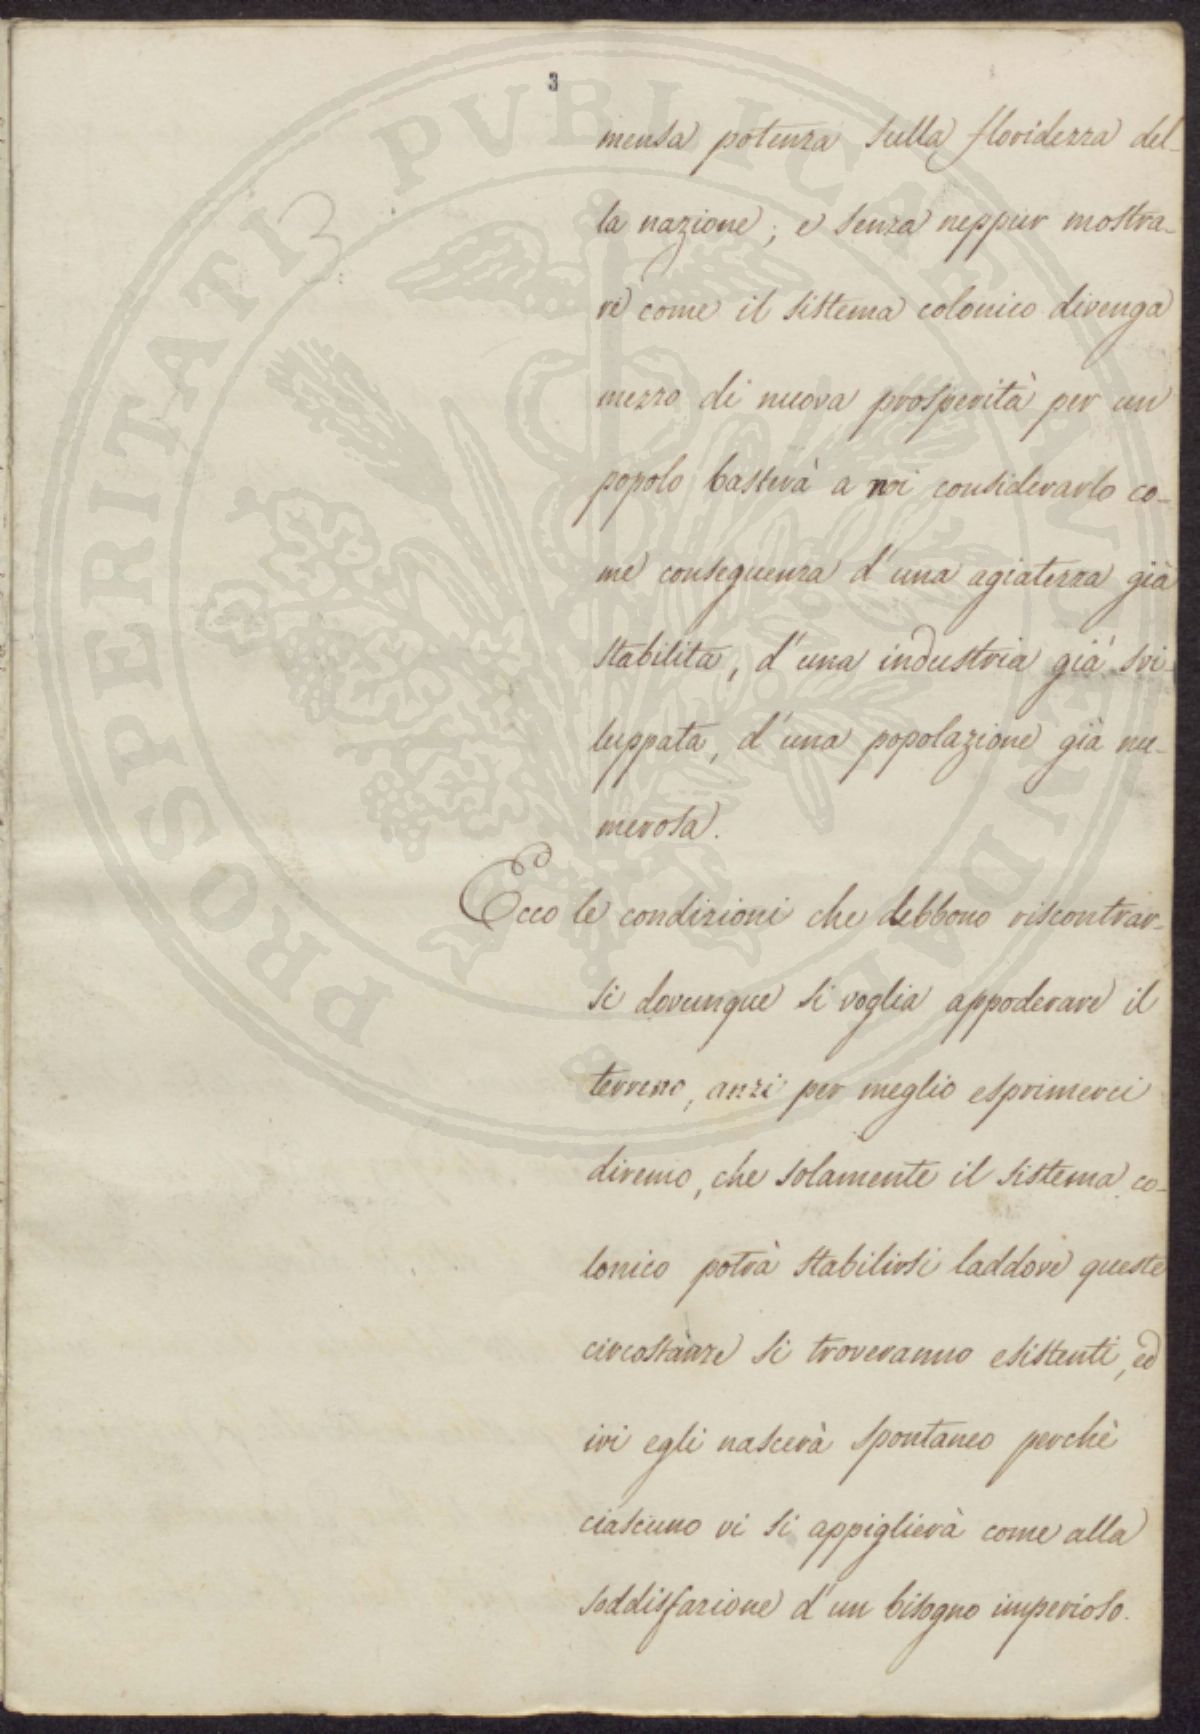 3
3
mensa potenza sulla floridezza del-
la nazione; e senza neppur mostra-
re come il sistema colonico divenga
mezzo di nuova prosperità per un
popolo basterà a noi considerarlo co-
me conseguenza d'una agiatezza già
stabilita, d'una industria già svi-
luppata, d'una popolazione già nu-
merosa.
Ecco le condizioni che debbono riscontrar-
si dovunque si voglia appoderare il
terreno, anzi per meglio esprimerci
diremo, che solamente il sistema co-
lonico potrà stabilirsi laddove queste
circostanze si troveranno esistenti, ed
ivi egli nascerà spontaneo perchè
ciascuno vi si appiglierà come alla
soddisfazione d'un bisogno imperioso.
PROSPERITATI PUBLICAE AUGENDAE